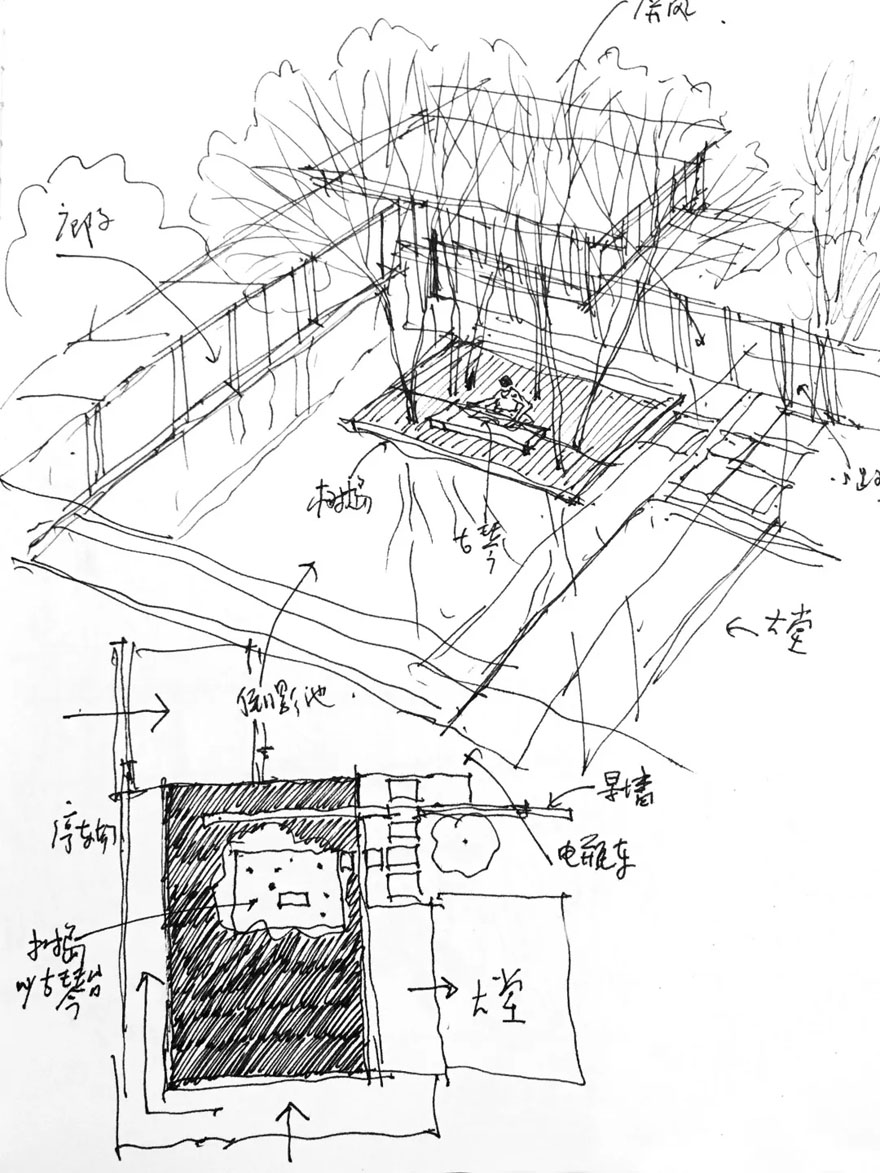 屏风.
廊子
树岛
古琴
大堂
倒影池.
景墙
停车场
电瓶车
树岛
古琴台
大堂